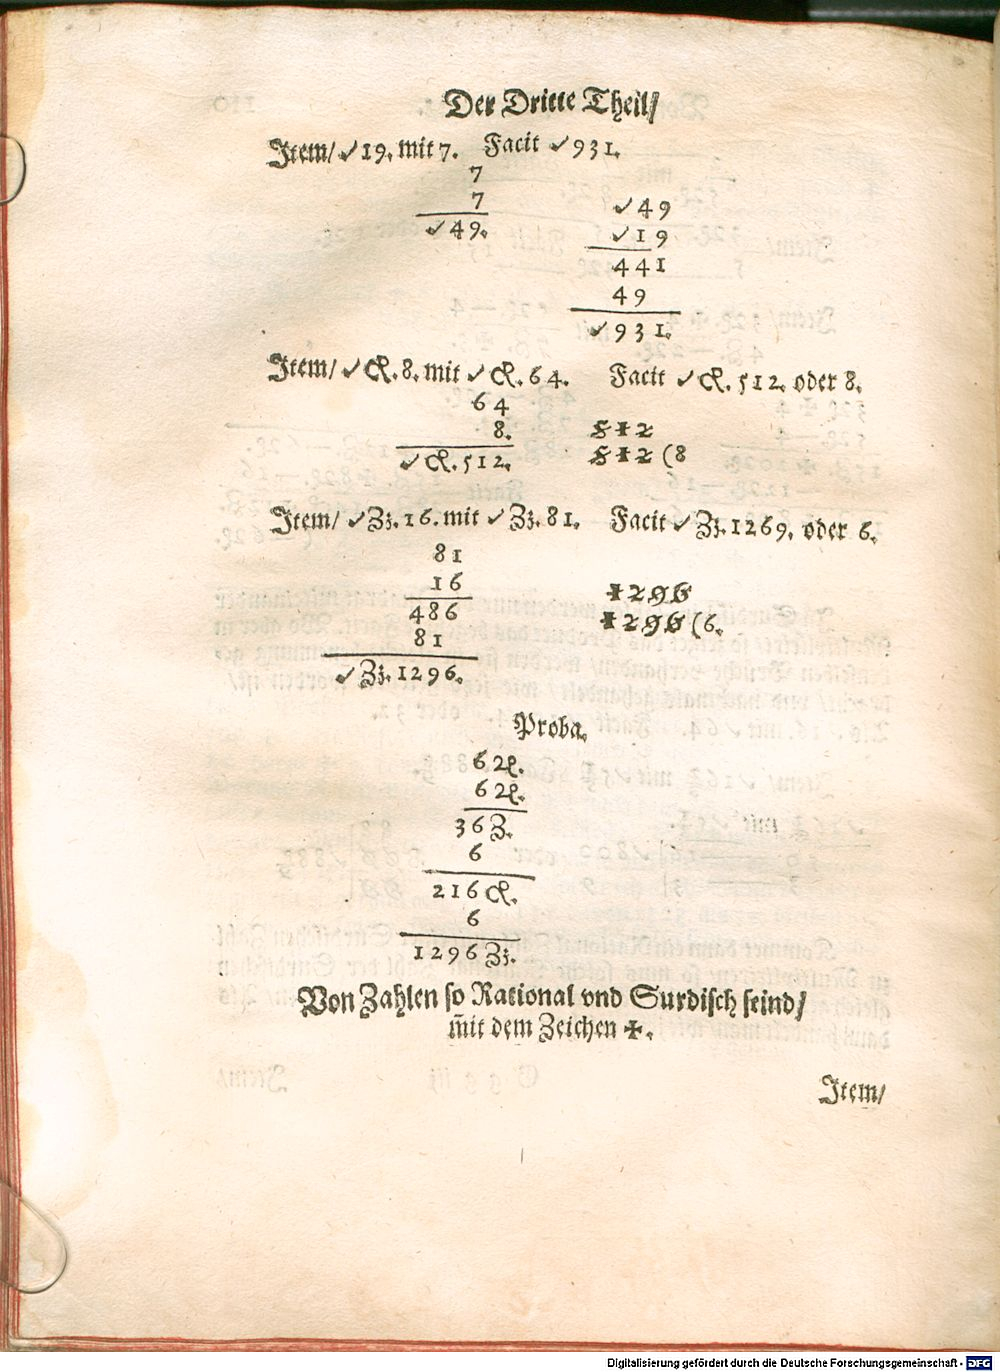 Der Dritte Theil/
Item/ √19. mit 7. Facit √931.
7
7
√49.
√49
√19
441
49
√931.
Item/ √ cꝭ. 8. mit √ cꝭ. 64. Facit √ cꝭ. 512. oder 8.
64
8.
√ cꝭ. 512.
512
512 (8
Item/ √Zz. 16. mit √Zz. 81. Facit √Zz. 1269. oder 6.
81
16
486
81
√Zz. 1296.
1296
1296 (6.
Proba.
6 2ꝭ.
6 2ꝭ.
36 Z.
6
216 cꝭ.
6
1296 Zz.
Von Zahlen so Rational vnd Surdisch seind/
m̃it dem Zeichen ✠.
Item/
Digitalisierung gefördert durch die Deutsche Forschungsgemeinschaft - DFG